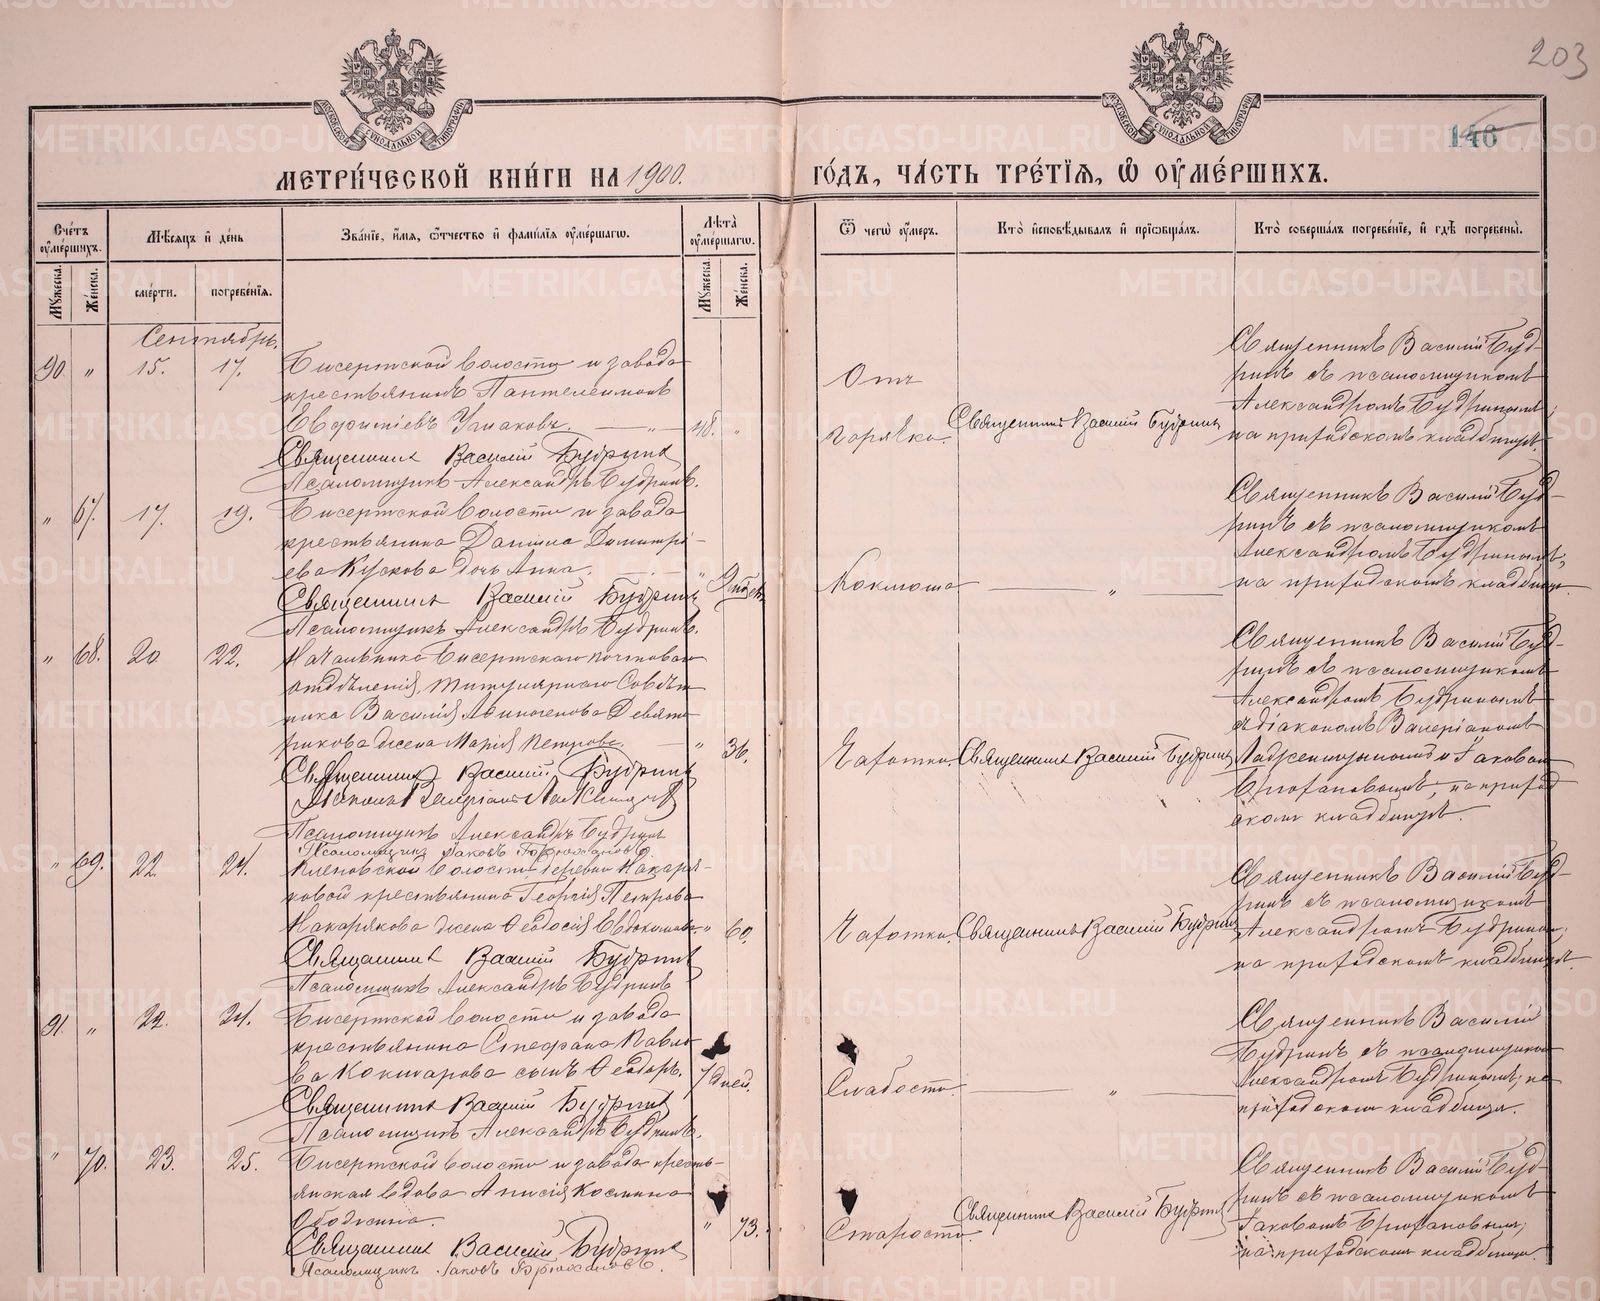 203
146
МЕТРИ́ЧЕСКОЙ КНИ́ГИ НА 1900. ГО́ДЪ, ЧА́СТЬ ТРЕ́ТIЯ, Ѿ ОУМЕ́РШИХЪ.
Сче́тъ оуме́ршихъ.
Мѣ́сяцъ и де́нь
Зва́нїе, и́мя, ѻ́тчество и фами́лїя оуме́ршагѡ.
Лѣта̀ оуме́ршагѡ.
Ѿ чегѡ̀ оу́меръ.
Кто̀ и́сповѣ́дывалъ и прїѡбща́лъ.
Кто̀ соверша́лъ погребе́нїе, и гдѣ̀ погребены̀.
Му́жеска.
Же́нска.
сме́рти.
погребе́нїя.
Му́жеска.
Же́нска.
Сентябрь.
90 " 15. 17.
Бисертской волости и завода
крестьянинъ Пантелеимонъ
Евфиміевъ Ушаковъ. 48. "
Священникъ Василій Будринъ
Псаломщикъ Александръ Будринъ.
Отъ
горячки.
Священникъ Василій Будринъ
Священникъ Василій Буд-
ринъ съ псаломщикомъ
Александромъ Будринымъ,
на приходскомъ кладбищѣ.
" 67. 17. 19.
Бисертской волости и завода
крестьянина Даніила Димитрі-
ева Кускова дочь Анна. "
Священникъ Василій Будринъ
Псаломщикъ Александръ Будринъ.
Коклюша. "
Священникъ Василій Буд-
ринъ съ псаломщикомъ
Александромъ Будринымъ,
на приходскомъ кладбищѣ.
" 68. 20 22.
Начальника Бисертскаго почтоваго
отдѣленія, Титулярнаго Совѣт-
ника Василія Аѳиногенова Девято-
рикова жена Марія Петрова. " 36.
Священникъ Василій Будринъ
Псаломщикъ Александръ Будринъ
Псаломщикъ Іаковъ
Чахотки.
Священникъ Василій Будринъ
Священникъ Василій Буд-
ринъ съ псаломщикомъ
Александромъ Будринымъ
съ діакономъ Валеріаномъ
и Іаковомъ
на приход-
скомъ кладбищѣ.
" 69. 22. 24.
Кленовской волости деревни Накаря-
ковой крестьянина Георгія Петрова
Накарякова жена Ѳеодосія Евдокимова " 60.
Священникъ Василій Будринъ
Псаломщикъ Александръ Будринъ
Чахотки.
Священникъ Василій Будринъ
Священникъ Василій Буд-
ринъ съ псаломщикомъ
Александромъ Будринымъ,
на приходскомъ кладбищѣ.
91. " 22. 24.
Бисертской волости и завода
крестьянина Стефана Павло-
ва Кокшарова сынъ Ѳеодоръ. 7 дней.
Священникъ Василій Будринъ
Псаломщикъ Александръ Будринъ.
Слабости. "
Священникъ Василій
Будринъ съ псаломщикомъ
Александромъ Будринымъ, на
приходскомъ кладбищѣ.
" 70. 23. 25.
Бисертской волости и завода кресть-
янская вдова Анисія Космина
" 73.
Священникъ Василій Будринъ
Псаломщикъ Іаковъ
Старости.
Священникъ Василій Будринъ
Священникъ Василій Буд-
ринъ съ псаломщикомъ
Іаковомъ
на приходскомъ кладбищѣ.
METRIKI.GASO-URAL.RU